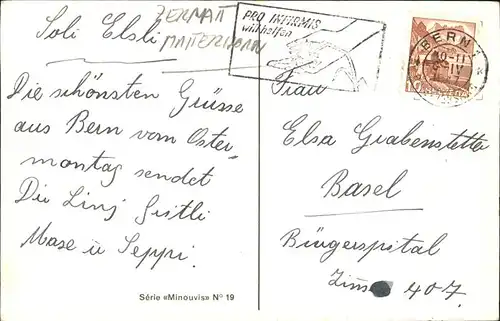 Soli Elsli
ZERMATT
MATTERHORN
PRO INFIRMIS
mithelfen
BERN 1
10-11
IV
Die schönsten Grüsse
aus Bern vom Oster-
montag sendet
Die Linj Gistli
Mase u Seppi.
Frau
Elsa Grabenstetter
Basel
Bürgerspital
Zim 407.
Série «Minouvis» N° 19